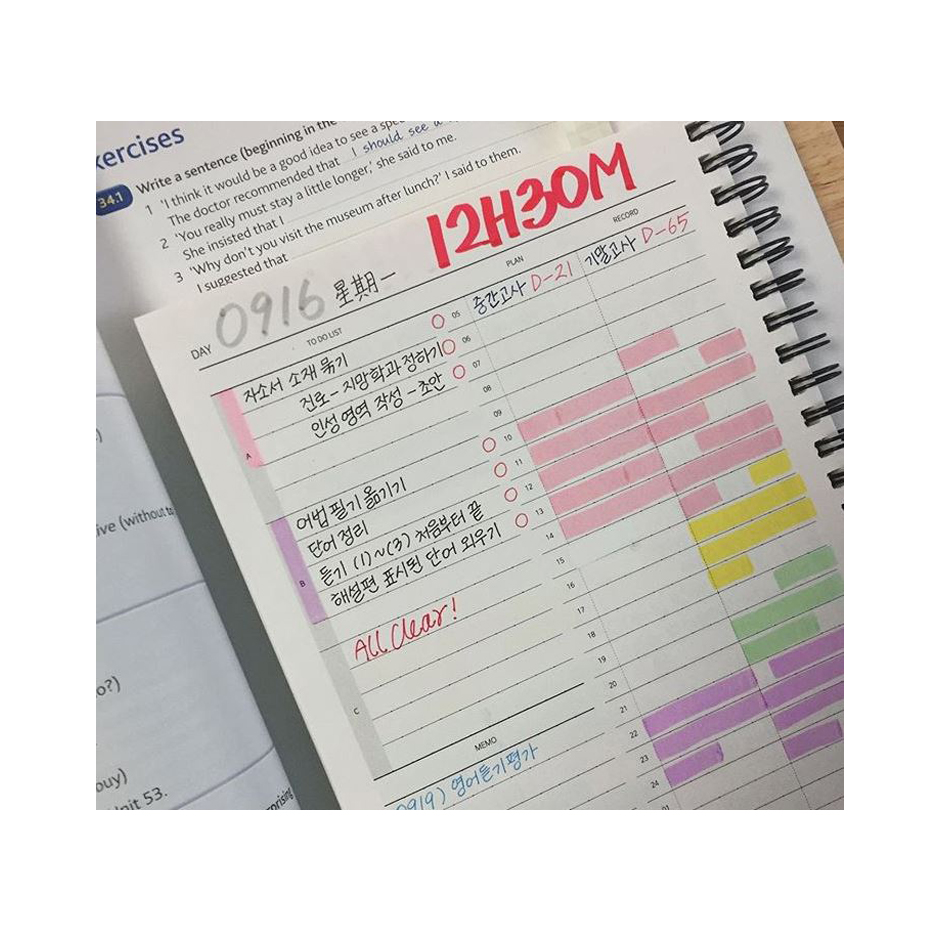 xercises
34.1 Write a sentence (beginning in the
1 'I think it would be a good idea to see a spe
The doctor recommended that I should see a
2 'You really must stay a little longer,' she said to me.
She insisted that I
3 'Why don't you visit the museum after lunch?' I said to them.
I suggested that
12H30M
DAY 0916 星其月一
TO DO LIST
PLAN
RECORD
중간고사 D-21
기말고사 D-65
자소서 소재 묶기
진로-지망학과 정하기
인성영역 작성 - 초안
A
어법 필기 옮기기
단어 정리
듣기 (1)~(3) 처음부터 끝
해설편 표시된 단어 외우기
B
All Clear!
C
MEMO
0919) 영어듣기평가
05
06
07
08
09
10
11
12
13
14
15
16
17
18
19
20
21
22
23
24
01
ive (without to
o?)
buy)
nit 53.